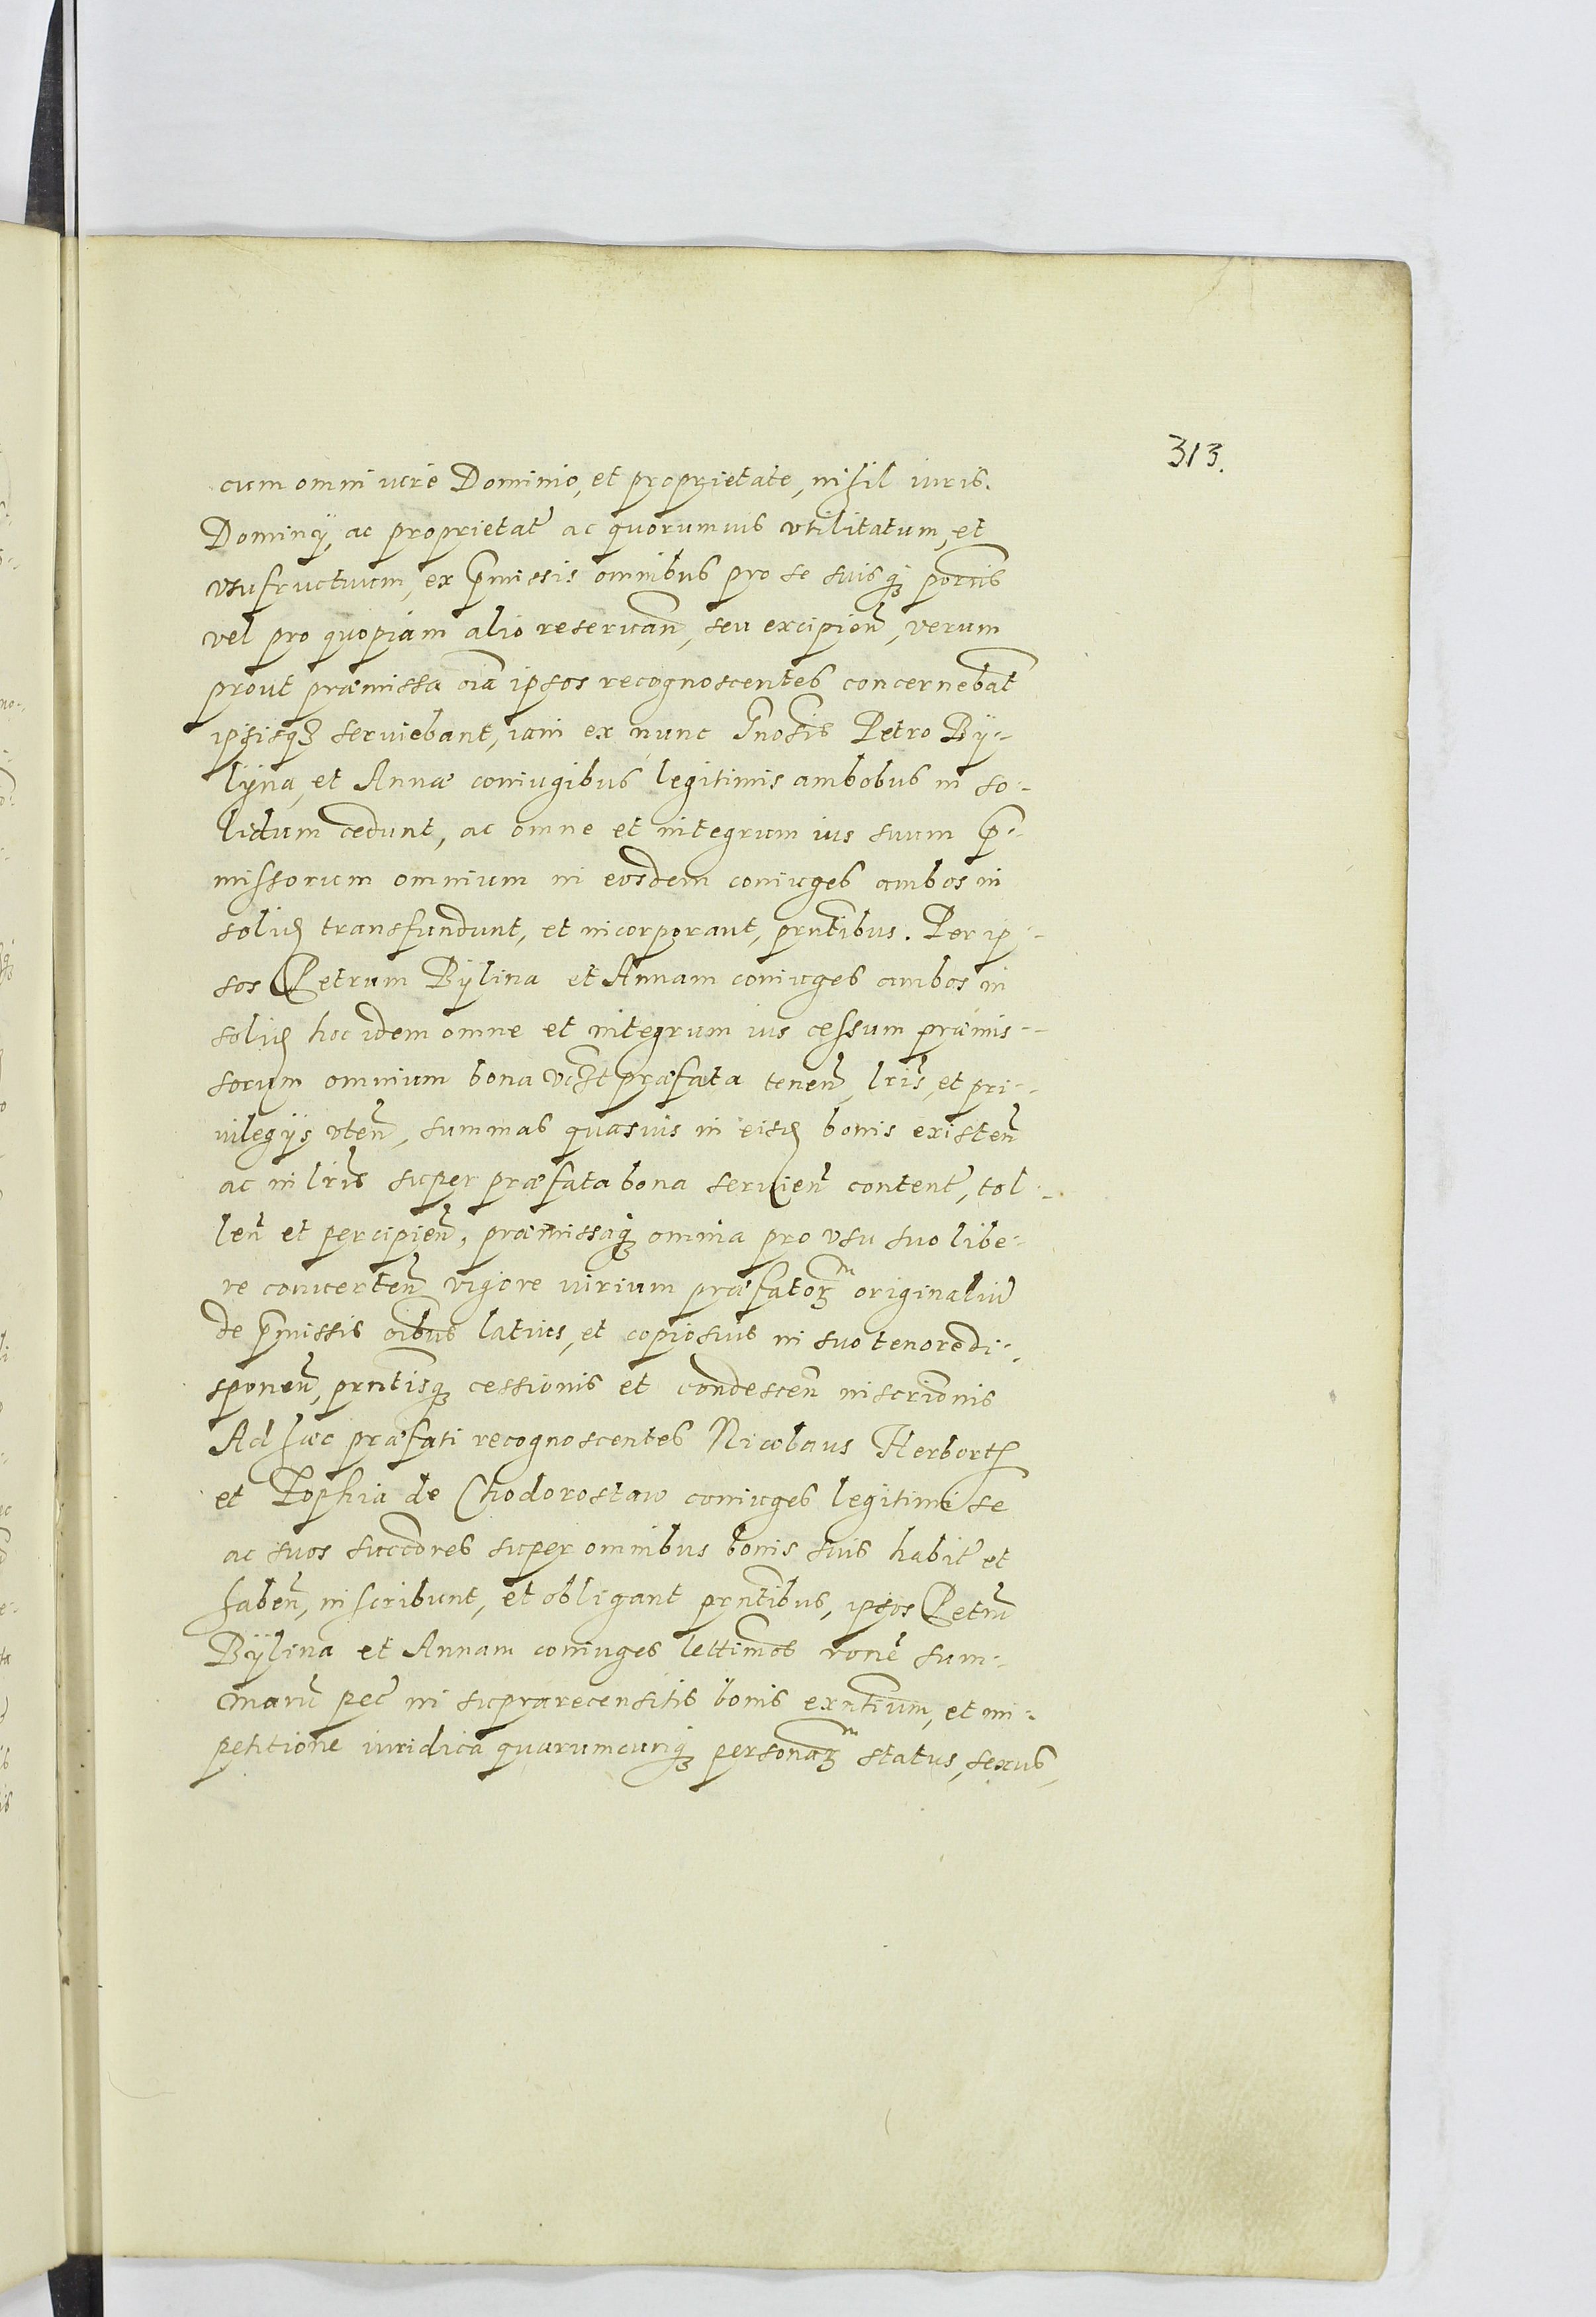 313.
cum omni iure Dominio, et proprietate, nihil iuris.
Dominÿ, ac proprietat̃ ac quorumuis vtilitatum, et
vsufructuum, ex p̃missis omnibus pro se suisqꝫ
vel pro quopiam alio reseruañ, seu excipien̄, verum
prout præmissa oĩa ipsos recognoscentes concernebãt
ipsisqꝫ seruiebant, iam ex nunc G̃nosis Petro Bÿ-
lÿna, et Annæ coniugibus legitimis ambobus in so-
lidum cedunt, ac omne et integrum ius suum p̃-
missorum omnium in eosdem coniuges ambos in
solid transfundunt, et incorporant, prñtibus. Per ip-
sos Petrum Bÿlina et Annam coniuges ambos in
solid hoc idem omne et integrum ius cessum præmis-
sorum omnium bona præfata tenen̄, lr̃is, et pri-
uilegÿs vten̄, summas quasuis in eisd bonis existen̄
ac in lr̃is super præfata bona seruien̄ content̃, tol-
len̄ et percipien̄, præmissaqꝫ omnia pro vsu suo libe-
re conuerten̄ vigore iurium præfatorꝫ originaliũ
de p̃missis oĩbus latius, et copiosius in suo tenore di-
sponen̄, prñtisqꝫ cessionis et condescen̄ inscriõnis
Ad hæc præfati recognoscentes Nicolaus Herborth
et Zophia de Chodorostaw coniuges legitimi se
ac suos succõres super omnibus bonis suis habit̃ et
haben̄, inscribunt, et obligant prñtibus, ipsos Petrũ
Bÿlina et Annam coniuges lettimos rõne sum-
marũ pec̃ in suprarecensitis bonis exñtium, et im-
petitione iuridica quarumcunqꝫ personarꝫ status, sexus,